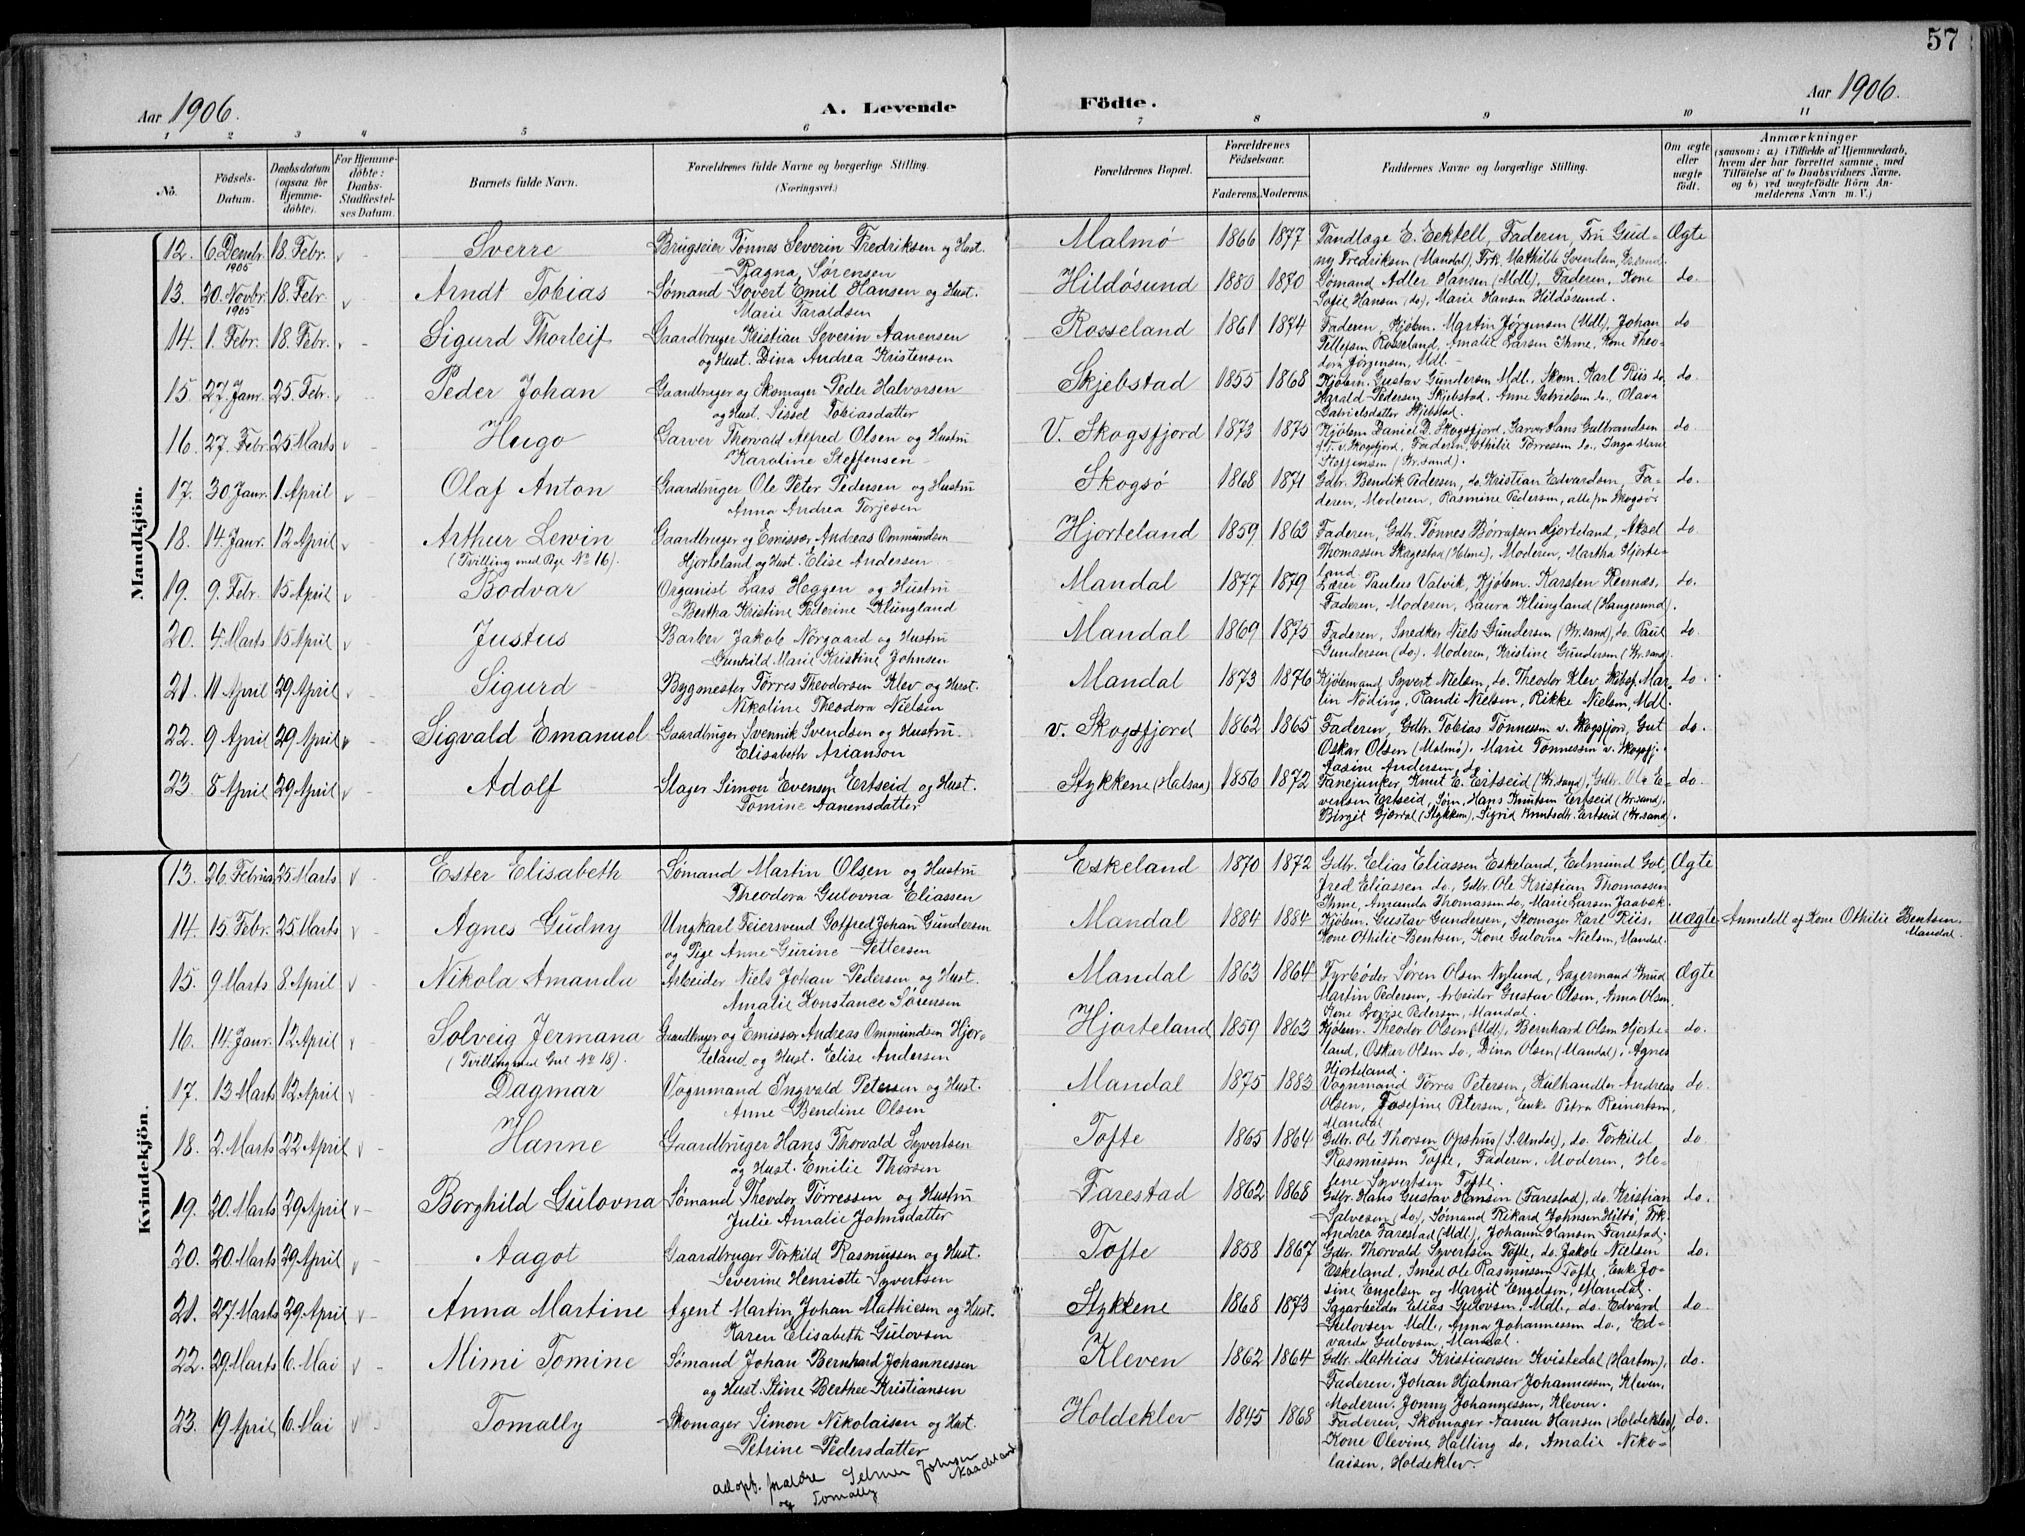 57
Aar 1906.
A. Levende
Födte.
Aar 1906.
1 2 3 4 5 6 7 8 9 10 11
No.
Födsels-Datum.
Daabsdatum (ogsaa for Hjemme-döbte).
For Hjemme-döbte: Daabs-Stadfæstel-ses Datum.
Barnets fulde Navn.
Forældrenes fulde Navne og borgerlige Stilling.
(Næringsvei.)
Forældrenes Bopæl.
Forældrenes Födselsaar.
Faderens. Moderens.
Faddernes Navne og borgerlige Stilling.
Om ægte eller uægte födt.
Anmærkninger
(saasom: a) i Tilfælde af Hjemmedaab, hvem der har forrettet samme, med Tilföielse af to Daabsvidners Navne, og b) ved uægtefödte Börn An-melderens Navn m. V.)
Mandkjön.
12. 6 Decmbr. 1905 18 Febr. Sverre Brugseier Tønnes Severin Fredriksen og Hust. Malmø 1866 1877 Tandlæge E. Ecktell, Faderen, Fru Gud- Ægte
Ragna Sørensen ny Fredriksen (Mandal), Frk. Mathilde Svendsen, Kr.sand.
13. 20. Novbr. 1905 18 Febr Arndt Tobias Sømand Govert Emil Hansen og Hust. Hildøsund 1880 1870 Sømand Adler Hansen (Mdl), Faderen, Kone do.
Marie Taraldsen Sofie Hansen (do), Marie Hansen Hildøsund.
14. 1. Febr. 18. Febr. Sigurd Thorleif Gaardbruger Kristian Severin Aanensen Rosseland 1861 1874 Faderen, Kjøbm. Martin Jørgensen (Mdl), Johan do
og Hust. Dina Andrea Kristensen Tellefsen Rosseland, Amalie Larsen Ihme, Kone Theo-
dora Jørgensen, Mdl.
15 27. Janr. 25. Febr. Peder Johan Gaardbruger og Skomager Peder Halvorsen Skjebstad 1855 1868 Kjøbm. Gustav Gundersen Mdl., Skom. Karl Riis do, do.
og Hust. Sissel Tobiasdatter Harald Pedersen Skjebstad, Anne Gabrielsen do., Olava
Gabrielsdatter Skjebstad.
16. 27. Febr. 25 Marts Hugo Garver Thorvald Alfred Olsen og Hustru V. Skogsfjord 1873 1875 Kjøbm Daniel D. Skogsfjord, Garver Hans Gulbrandsen do.
Karoline Steffensen f. T. v. Skogsfjord, Faderen, Othilie Tørressen do., Inga Marie
Steffensen (Kr.sand).
17. 30 Janr. 1. April Olaf Anton Gaardbruger Ole Peter Pedersen og Hustru Skogsø 1868 1871 Gdbr. Bendik Pedersen, do. Kristian Edvardsen, Fa- do.
Anna Andrea Torjesen deren, Moderen, Rasmine Pedersen, alle fra Skogsø
18. 14. Janr. 12 April Arthur Lewin Gaardbruger og Emissær Andreas Ommundsen Hjorteland 1859 1863 Faderen, Gdbr. Tønnes Børrufsen Hjorteland, Aksel do.
(Tvilling med Pige No 16). Hjorteland og Hust. Elise Andersen Thomassen Skagestad (Holme), Moderen, Martha Hjorte-
land.
19. 9. Febr. 15 April Bodvar Organist Lars Heggen og Hustru Mandal 1877 1879 Lærer Paulus Valvik, Kjøbm. Karsten Rennæs, do.
Bertha Kristine Peterine Klungland Faderen, Moderen, Laura Klungland (Haugesund).
20. 4. Marts 15 April Justus Barber Jakob Nørgaard og Hustru Mandal 1869 1875 Faderen, Snedker Niels Gundersen (Kr.sand), do. Paul do.
Gunhild Marie Kristine Johnsen Gundersen (do). Moderen, Kristine Gundersen (Kr.sand).
21. 11 April 29 April Sigurd Bygmester Tørres Theodorsen Klev og Hust. Mandal 1873 1876 Kjøbmand Syvert Nielsen, do. Theodor Klev, Skibsf. Mar- do.
Nikoline Theodora Nielsen tin Nøding, Randi Nielsen, Rikke Nielsen, Mdl.
22. 9 April 29 April Sigvald Emanuel Gaardbruger Svennik Svendsen og Hustru. v. Skogsfjord 1862 1865 Faderen, Gdbr. Tobias Tønnessen v. Skogsfjor, Gut do.
Elisabeth Arianson Oskar Olsen (Malmø). Marie Tønnessen v. Skogsfj.
Aasine Andersen, do
23. 8 April 29 April Adolf Slager Simon Evensen Ertseid og Hust. Stykkene (Halsaa) 1856 1872 Fanejunker, Knut E. Ertseid (Kr.sand), Gdbr. Ola E- do.
Tomine Aanensdatter vertsen Ertseid, Søn, Hans Knutsen Ertseid (Kr.sand).
Birgit Gjærdal (Stykken), Sigrid Knutsdtr. Ertseid (Kr.sand).
Kvindekjön.
13. 26. Februa 25 Marts Ester Elisabeth Sømand Martin Olsen og Hustru Eskeland 1870 1872 Gdbr. Elias Eliassen Eskeland, Edmund Got, Ægte
Theodora Gulovna Eliassen fred Eliassen do., Gdbr. Ole Kristian Thomassen
Ihme, Amanda Thomassen do, Marie Larsen Jaabæk.
14. 15. Febr. 25 Marts Agnes Gudny Ungkarl Feiersvend Gotfred Johan Gundersen Mandal 1884 1884 Kjøbm. Gustav Gundersen, Skomager Karl Riis. Uægte Anmeldt af Kone Othilie Bentsen.
og Pige Anne Gurine Pettersen Kone Othilie Bentsen, Kone Gulovna Nielsen, Mandal. Mandal.
15. 9 Marts 8 April Nikola Amanda Arbeider Niels Johan Pedersen og Hust. Mandal 1863 1864 Fyrbøder Søren Olsen Nylund, Lagermand Knud Ægte
Amalie Konstance Sørensen Martin Pedersen, Arbeider Gustav Olsen, Anna Olsen,
Kone Lovise Pedersen, Mandal.
16. 14. Janr. 12 April Solveig Jermana Gaardbruger og Emissær Andreas Ommundsen Hjor- Hjorteland 1859 1863 Kjøbm. Theodor Olsen (Mdl), Bernhard Olsen Hjorte- do.
(Tvilling med Gut No 18). teland og Hust. Elise Andersen land, Oskar Olsen do., Dina Olsen (Mandal), Agnes
Hjorteland.
17. 13 Marts 12 April Dagmar Vognmand Ingvald Petersen og Hust. Mandal 1875 1883 Vognmand Tørres Petersen, Kulhandler Andreas do.
Anne Bendine Olsen Olsen, Josefine Petersen, Enke Petra Reinertsen,
Mandal
18. 2. Marts 22 April Hanne Gaardbruger Hans Thorvald Syvertsen Tofte 1865 1864 Gdbr. Ole Thorsen Opshus (S. Undal), do. Torkild do.
og Hust. Emilie Thorsen Rasmussen Tofte, Faderen, Moderen, He-
lene Syvertsen Tofte.
19. 20. Marts 29 April Borghild Gulovna Sømand Theodor Tørressen og Hustru Farestad 1862 1868 Gdbr. Hans Gustav Hansen (Farestad), do. Kristian do.
Julie Amalie Johnsdatter Salvesen (do), Sømand Rikard Johnsen Hildø, Frk.
Andrea Farestad (Mdl), Johanne Hansen Farestad.
20. 20. Marts 29 April Aagot Gaardbruger Torkild Rasmussen og Hust. Tofte 1858 1867 Gdbr. Thorvald Syvertsen Tofte, do. Jakob Nielsen do.
Severine Henriette Syvertsen Eskeland, Smed Ole Rasmussen Tofte, Enke Jo-
sine Engelsen og Margit Engelsen, Mandal.
21. 27. Marts 29 April Anna Martine Agent Martin Johan Mathiesen og Hust. Stykkene 1868 1873 Sagarbeider Elias Gulovsen, Mdl., do. Edvard do.
Karen Elisabeth Gulovsen Gulovsen Mdl., Anna Johannessen do., Ed-
varda Gulovsen, Mandal.
22. 29. Marts 6. Mai Mimi Tomine Sømand Johan Bernhard Johannessen Kleven 1862 1864 Gdbr. Mathias Kristiansen Kvistedal (Hartm), do.
og Hust. Stine Berthee Kristiansen Faderen, Johan Hjalmar Johannessen, Kleven,
Moderen, Jonny Johannessen, Kleven.
23. 19 April 6. Mai Tomally Skomager Simon Nikolaisen og Hust. Holdeklev 1845 1868 Faderen, Skomager Aanen Hansen (Holdeklev), do.
Petrine Pedersdatter Kone Olevine Halling do., Amalie Niko-
laisen, Holdeklev.
adopt. foreldre Selmer Johnsen Naadeland
og Tomally